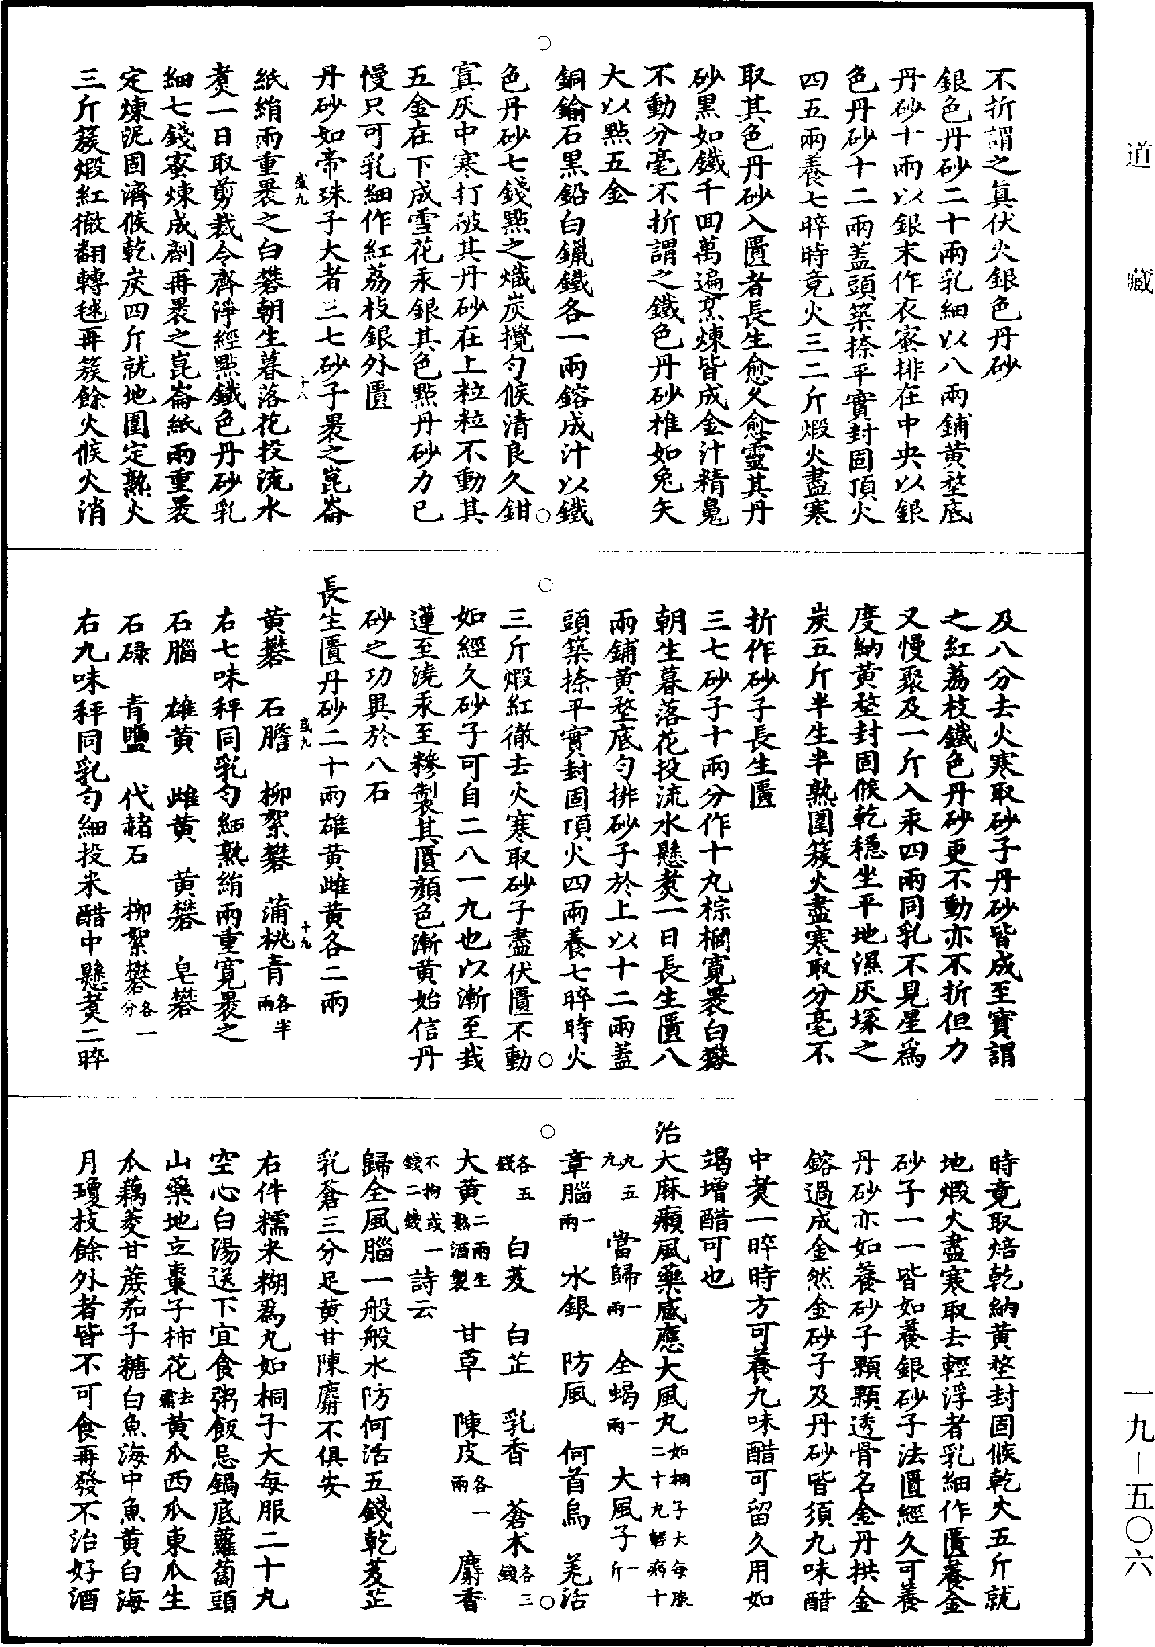 道藏
不折謂之真伏火銀色丹砂
銀色丹砂二十兩乳細以八兩鋪黃埿底
丹砂十兩以銀末作衣蜜排在中央以銀
色丹砂十二兩蓋頭築捺平實封固頂火
四五兩養七晬時竟火三二斤煅火盡寒
取其色丹砂入匱者長生愈久愈靈其丹
砂黑如鐵千回萬遍烹煉皆成金汁精䰟
不動分毫不折謂之鐵色丹砂椎如兔矢
大以點五金
銅鍮石黑鉛白鑞鐵各一兩鎔成汁以鐵
色丹砂七錢點之熾炭攪勻候清良久鉗
寘灰中寒打破其丹砂在上粒粒不動其
五金在下成雪花汞銀其色點丹砂力已
慢只可乳細作紅荔枝銀外匱
丹砂如帝珠子大者三七砂子褁之崑崙
感九
十八
紙絹兩重褁之白礬朝生暮落花投流水
煑一日取剪栽令齊淨經點鐵色丹砂乳
細七錢蜜煉成劑再褁之崑崙紙兩重褁
定煉泥固濟候乾炭四斤就地圍定熟火
三斤簇煅紅徹翻轉毬再簇餘火候火消
及八分去火寒取砂子丹砂皆成至寳謂
之紅荔枝鐵色丹砂更不動亦不折但力
又慢聚及一斤入汞四兩同乳不見星爲
度納黃埿封固候乾穩坐平地濕灰塚之
炭五斤半生半熟圍簇火盡寒取分毫不
折作砂子長生匱
三七砂子十兩分作十丸棕櫚寬褁白礬
朝生暮落花投流水懸煑一日長生匱八
兩鋪黃埿底勻排砂子於上以十二兩蓋
頭築捺平實封固頂火四兩養七晬時火
三斤煅紅徹去火寒取砂子盡伏匱不動
如經久砂子可自二八一九也以漸至栽
蓮至澆汞至糝製其匱顔色漸黃始信丹
砂之功異於八石
長生匱丹砂二十兩雄黃雌黃各二兩
感九
十九
黃礬　石膽　柳絮礬　蒲桃青各半兩
右七味秤同乳勻細熟絹兩重寬褁之
石腦　雄黃　雌黃　黃礬　皂礬
石碌　青鹽　代赭石　柳絮礬各一分
右九味秤同乳勻細投米醋中懸煑二晬
時竟取焙乾納黃埿封固候乾火五斤就
地煅火盡寒取去輕浮者乳細作匱養金
砂子一一皆如養銀砂子法匱經久可養
丹砂亦如養砂子顆顆透骨名金丹拱金
鎔過成金然金砂子及丹砂皆須九味醋
中煑一晬時方可養九味醋可留久用如
竭增醋可也
治大麻癩風藥感應大風丸如桐子大每服二十九輕病十
九五九　當歸一兩　全蝎一兩　大風子一斤
章腦一兩　水銀　防風　何首烏　羌活
各五錢　白芨　白芷　乳香　蒼术各三錢
大黃二兩生熟酒製　甘草　陳皮各一兩　麝香
不拘或一錢二錢詩云
歸全風腦一般般水防何活五錢乾芨芷
乳蒼三分足黃甘陳麝不俱安
右件糯米糊爲丸如桐子大每服二十丸
空心白湯送下宜食粥飯忌鍋底蘿蔔頭
山藥地立棗子柿花去霜黃瓜西瓜東瓜生
瓜藕菱甘蔗茄子糖白魚海中魚黃白海
月瓊枝餘外者皆不可食再發不治好酒
一九—五〇六